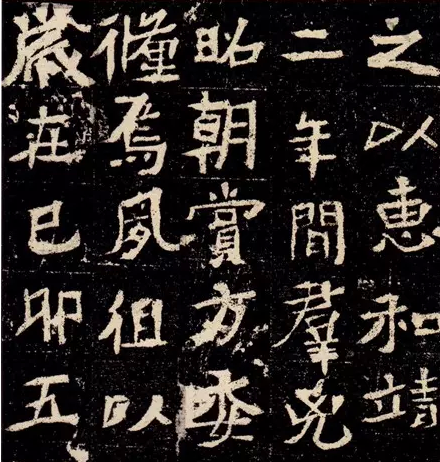 之以惠和靖
二年間羣兇
昭朝賞方委
焉夙徂以
歲在己卯五